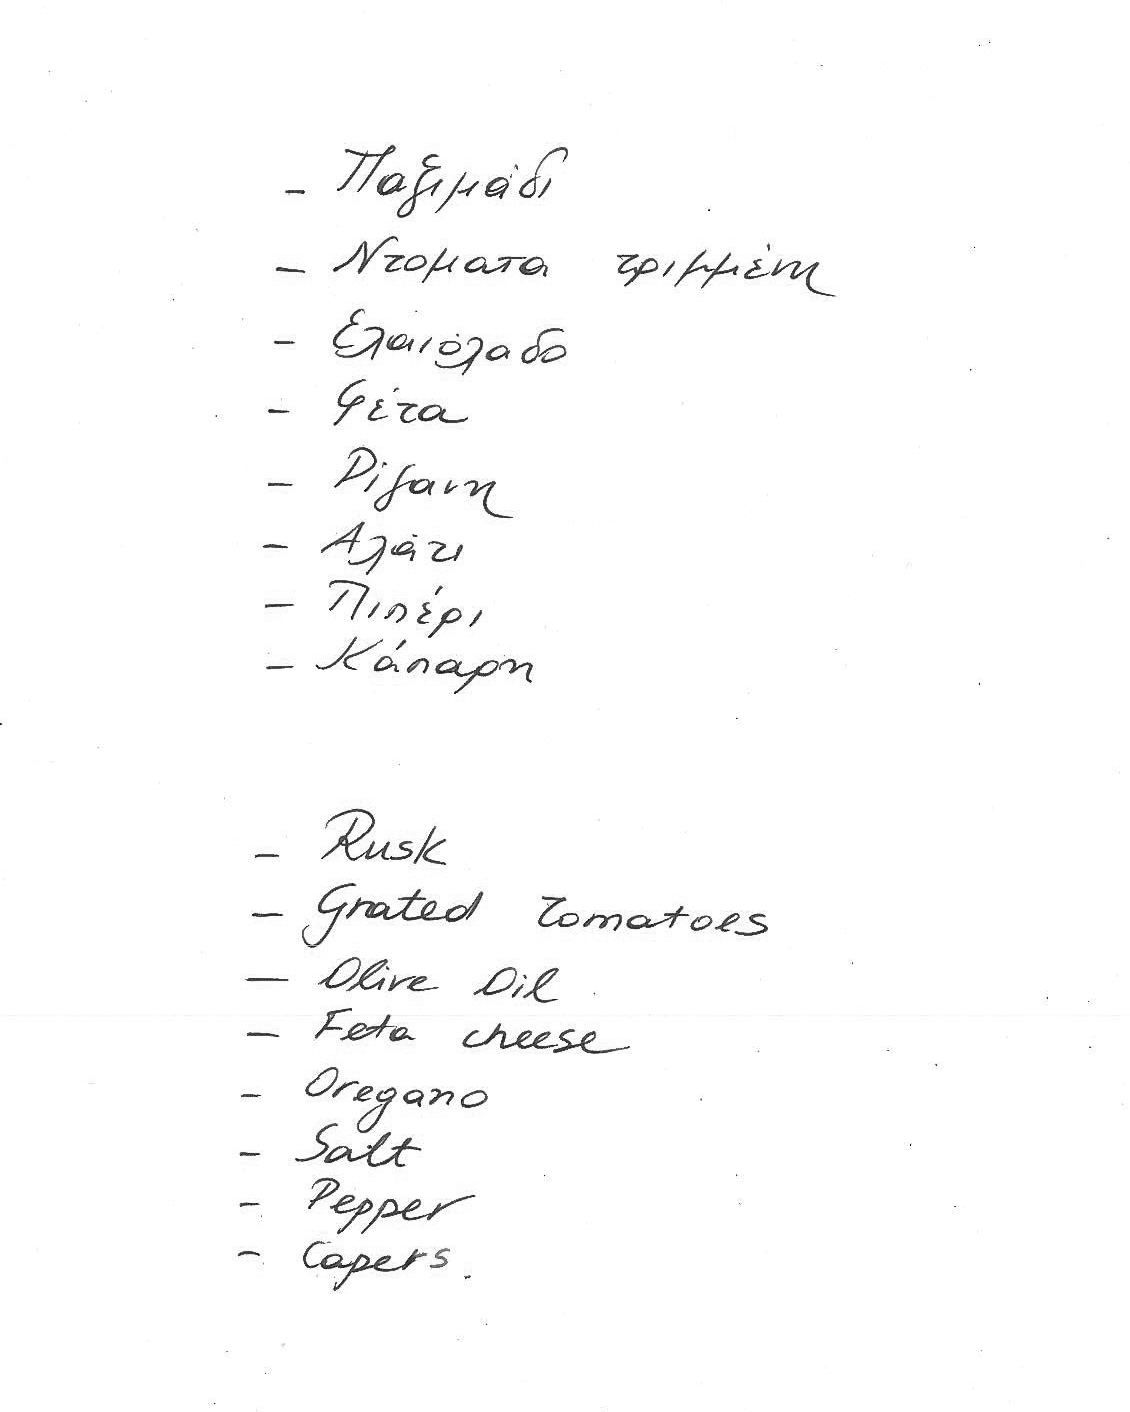 - Παξιμάδι
- Ντοματα τριμμένη
- Ελαιόλαδο
- Φέτα
- Ρίγανη
- Αλάτι
- Πιπέρι
- Κάπαρη
- Rusk
- Grated Tomatoes
- Olive Oil
- Feta cheese
- Oregano
- Salt
- Pepper
- Capers.